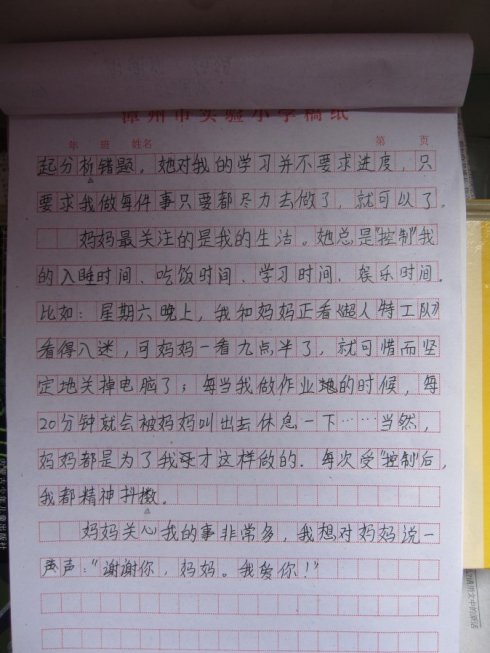 漳州市实验小学稿纸
年 班 姓名 第 页
起分析错题。她对我的学习并不要求进度，只
要求我做每件事只要都尽力去做了，就可以了。
妈妈最关注的是我的生活。她总是“控制”我
的入睡时间、吃饭时间、学习时间、娱乐时间。
比如：星期六晚上，我和妈妈正看《超人特工队》
看得入迷，可妈妈一看九点半了，就可惜而坚
定地关掉电脑了；每当我做作业地的时候，每
20分钟就会被妈妈叫出去休息一下……当然，
妈妈都是为了我才这样做的。每次受“控制”后，
我都精神抖擞。
妈妈关心我的事非常多，我想对妈妈说一
声声：“谢谢你，妈妈。我爱你！”
少年儿童出版社